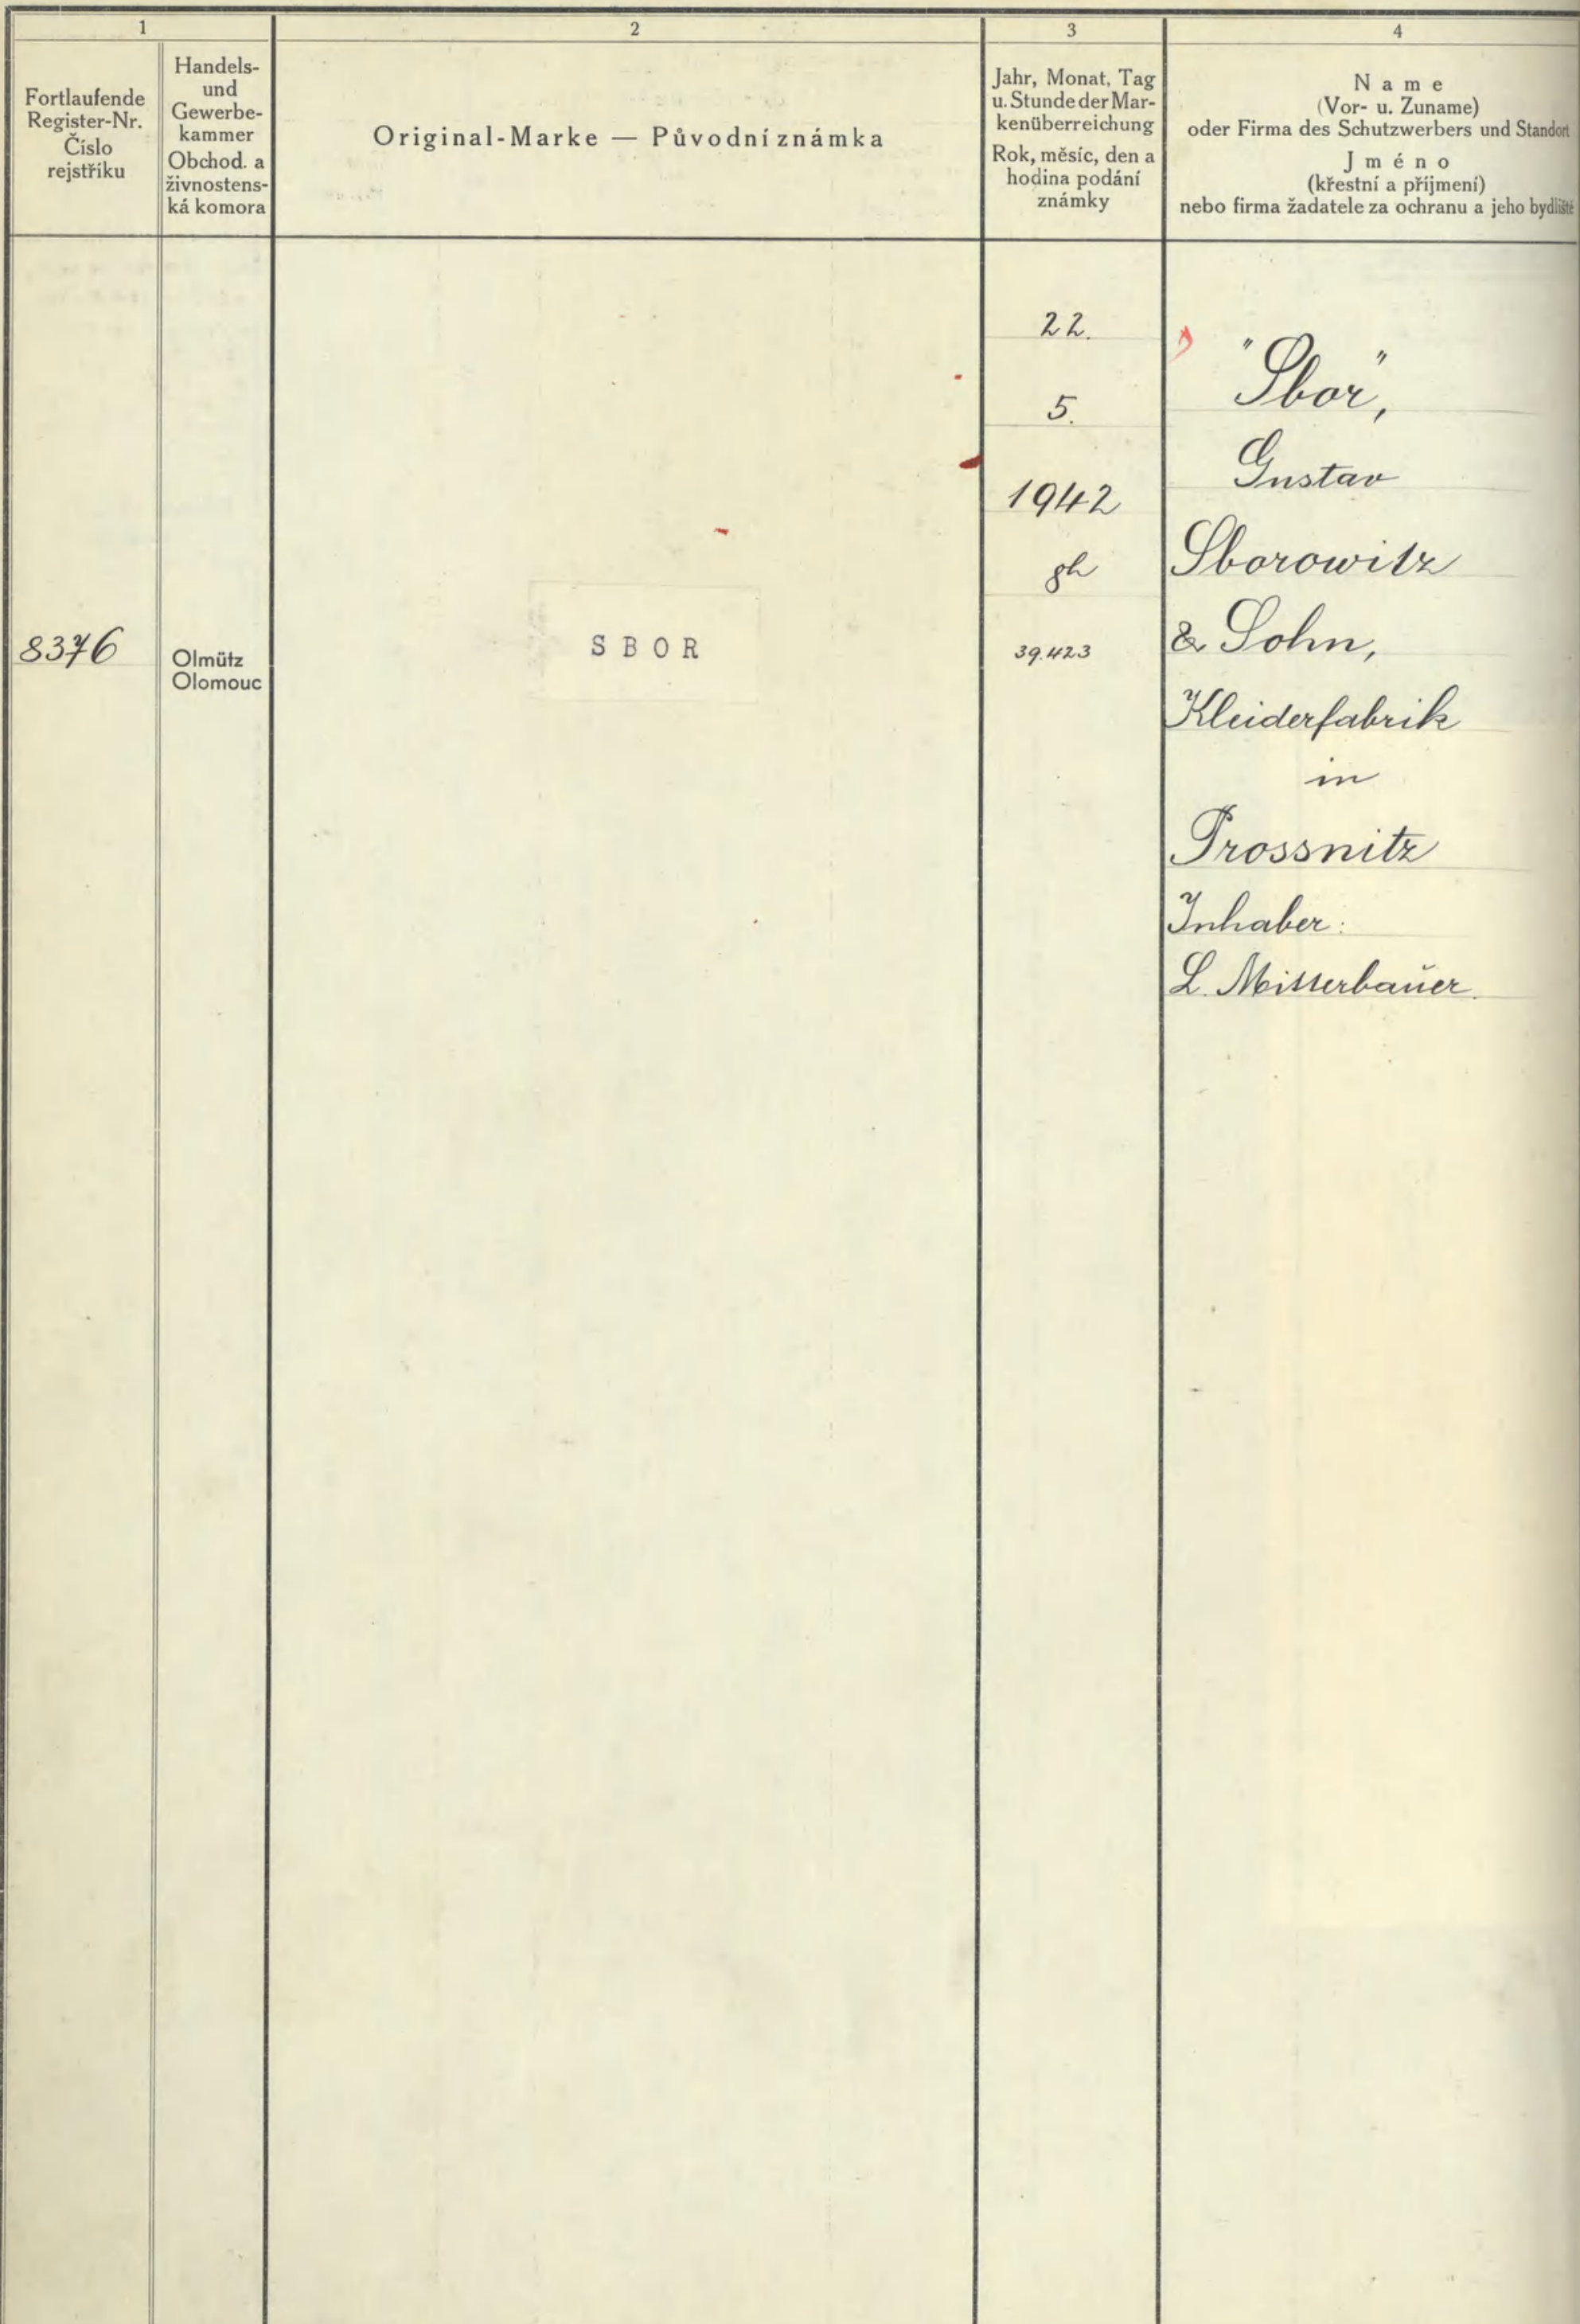 1
2
3
4
Fortlaufende
Register-Nr.
Číslo
rejstříku
Handels-
und
Gewerbe-
kammer
Obchod. a
živnostens-
ká komora
Original-Marke — Původní známka
Jahr, Monat, Tag
u. Stunde der Mar-
kenüberreichung
Rok, měsíc, den a
hodina podání
známky
Name
(Vor- u. Zuname)
oder Firma des Schutzwerbers und Standort
Jméno
(křestní a příjmení)
nebo firma žadatele za ochranu a jeho bydliště
8376
Olmütz
Olomouc
SBOR
22.
5.
1942
8h
39.423
"Sbor",
Gustav
Sborowitz
& Sohn,
Kleiderfabrik
in
Prossnitz
Inhaber:
L. Mitterbauer.